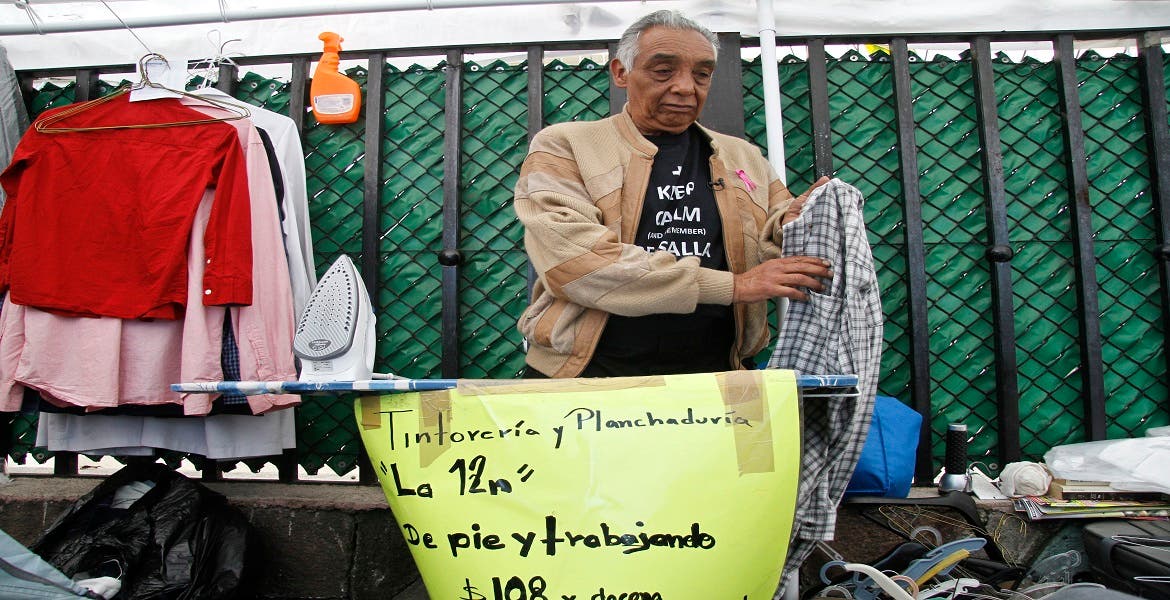 KEEP
CALM
(AND REMEMBER)
DE SALLA
Tintorería y Planchaduría
"La 12n"
De pie y trabajando
$ 108 x docena